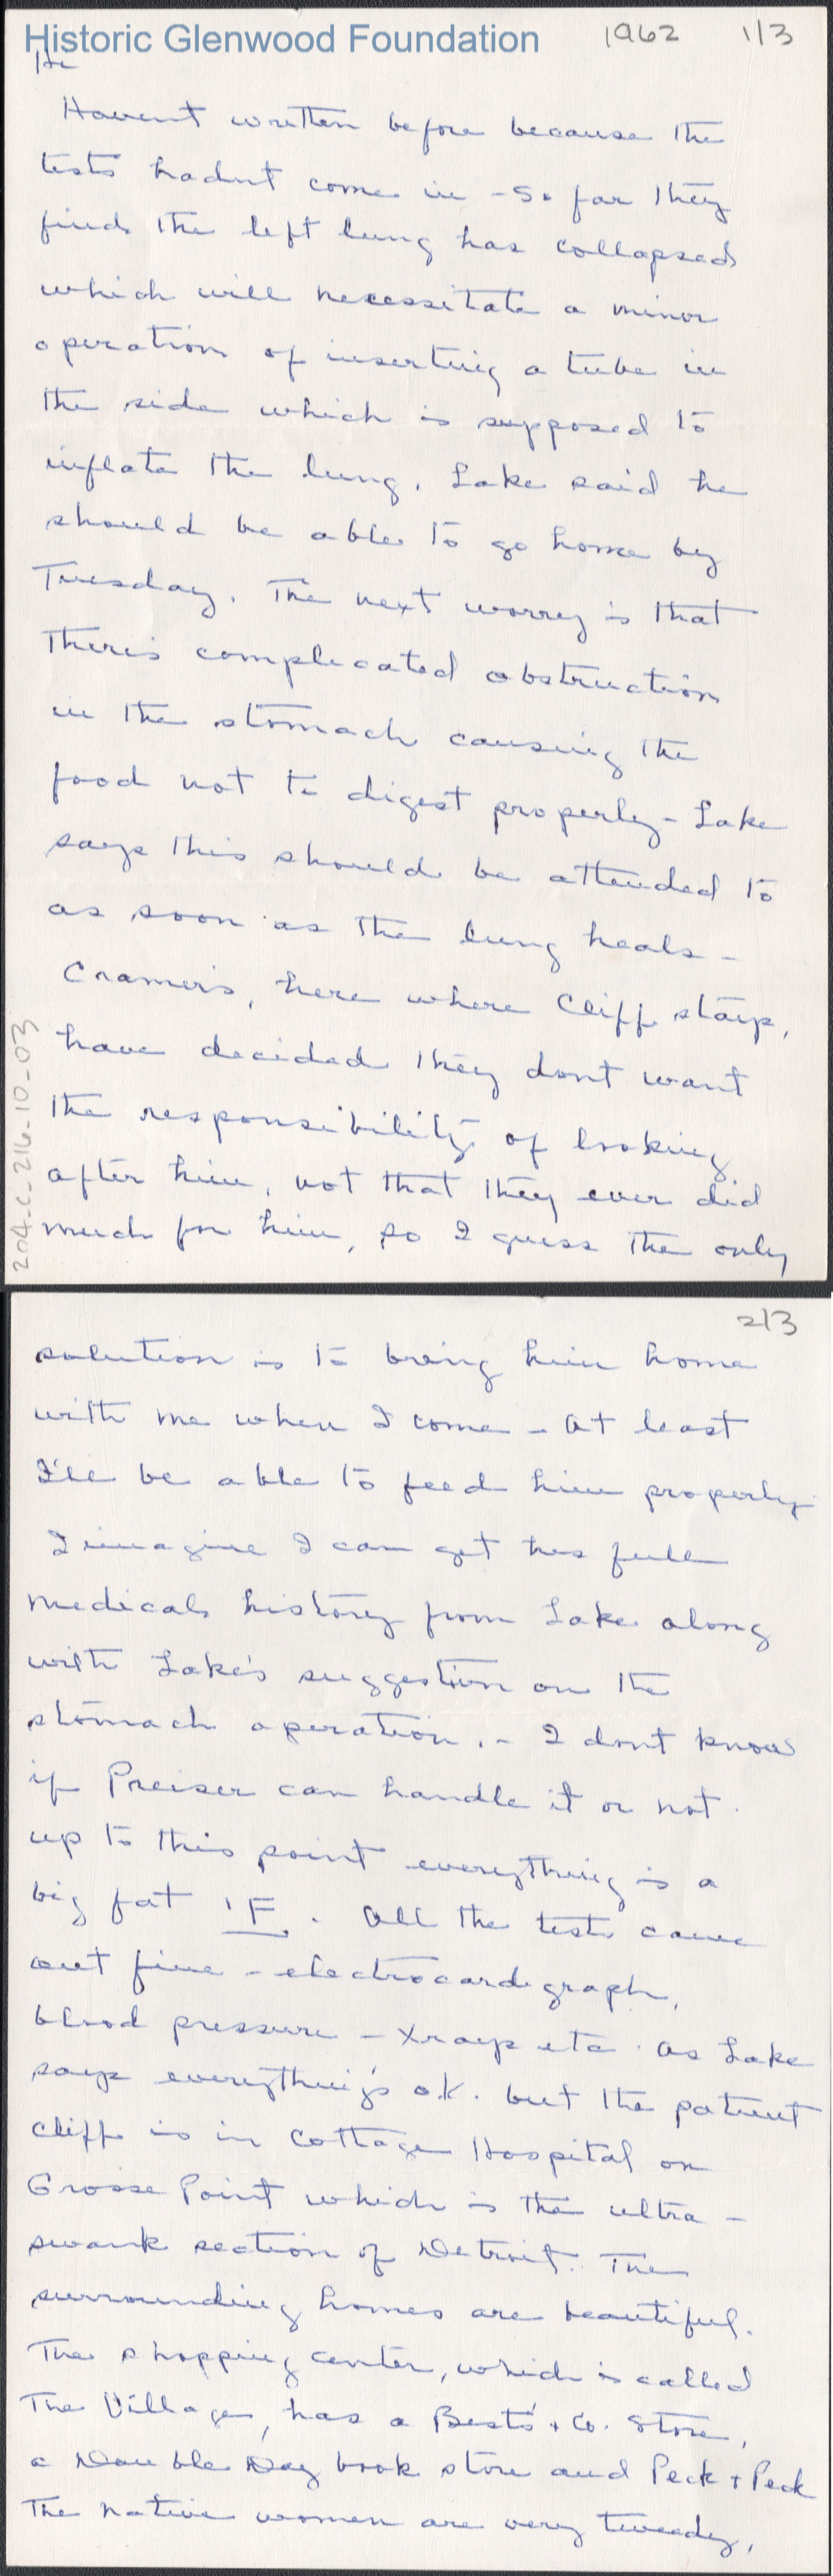 Historic Glenwood Foundation
1962 1/3
Hi
Havent written before because the
tests hadnt come in - So far they
finds the left lung has collapsed
which will necessitate a minor
operation of inserting a tube in
the side which is supposed to
inflate the lung. Lake said he
should be able to go home by
Tuesday. The next worry is that
theres complicated obstruction
in the stomach causing the
food not to digest properly - Lake
says this should be attended to
as soon as the lung heals -
Cramers, here where Cliff stays,
have decided they dont want
the responsibility of looking
after him, not that they ever did
much for him, so I guess the only
204-C-216-10-03
2/3
solution is to bring him home
with me when I come - At least
I'll be able to feed him properly
I imagine I can get his full
medical history from Lake along
with Lake's suggestion on the
stomach operation. - I dont know
if Preiser can handle it or not.
up to this point everything is a
big fat IF. All the tests came
out fine - electrocardigraph,
blood pressure - Xrays etc. as Lake
says everything's o.k. but the patient
Cliff is in Cottage Hospital on
Grosse Point which is the ultra -
swank section of Detroit. The
surrounding homes are beautiful.
The shopping center, which is called
The Village, has a Best's + Co. Store,
a Double Day book store and Peck + Peck
The native women are very tweedy,